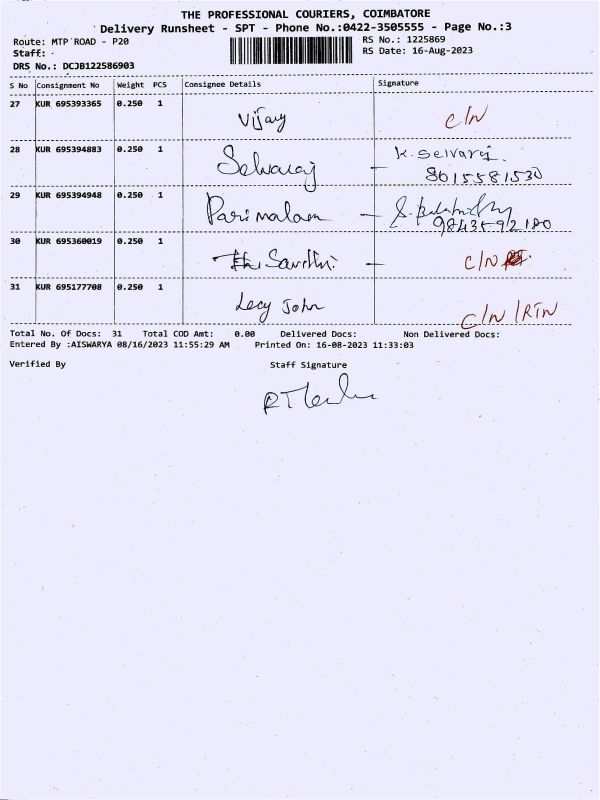 THE PROFESSIONAL COURIERS, COIMBATORE
Delivery Runsheet - SPT - Phone No.:0422-3505555 - Page No.:3
Route: MTP ROAD - P20 RS No.: 1225869
Staff: RS Date: 16-Aug-2023
DRS No.: DCJB122586903
S No Consignment No Weight PCS Consignee Details Signature
27 KUR 695393365 0.250 1 Vijay C/N
28 KUR 695394883 0.250 1 Selvaraj - K. Selvaraj.
8015581530
29 KUR 695394948 0.250 1 Parimalam -
30 KUR 695360019 0.250 1 Savithri - C/N
31 KUR 695177708 0.250 1 Lecy John C/N /RTN
Total No. Of Docs: 31 Total COD Amt: 0.00 Delivered Docs: Non Delivered Docs:
Entered By :AISWARYA 08/16/2023 11:55:29 AM Printed On: 16-08-2023 11:33:03
Verified By Staff Signature